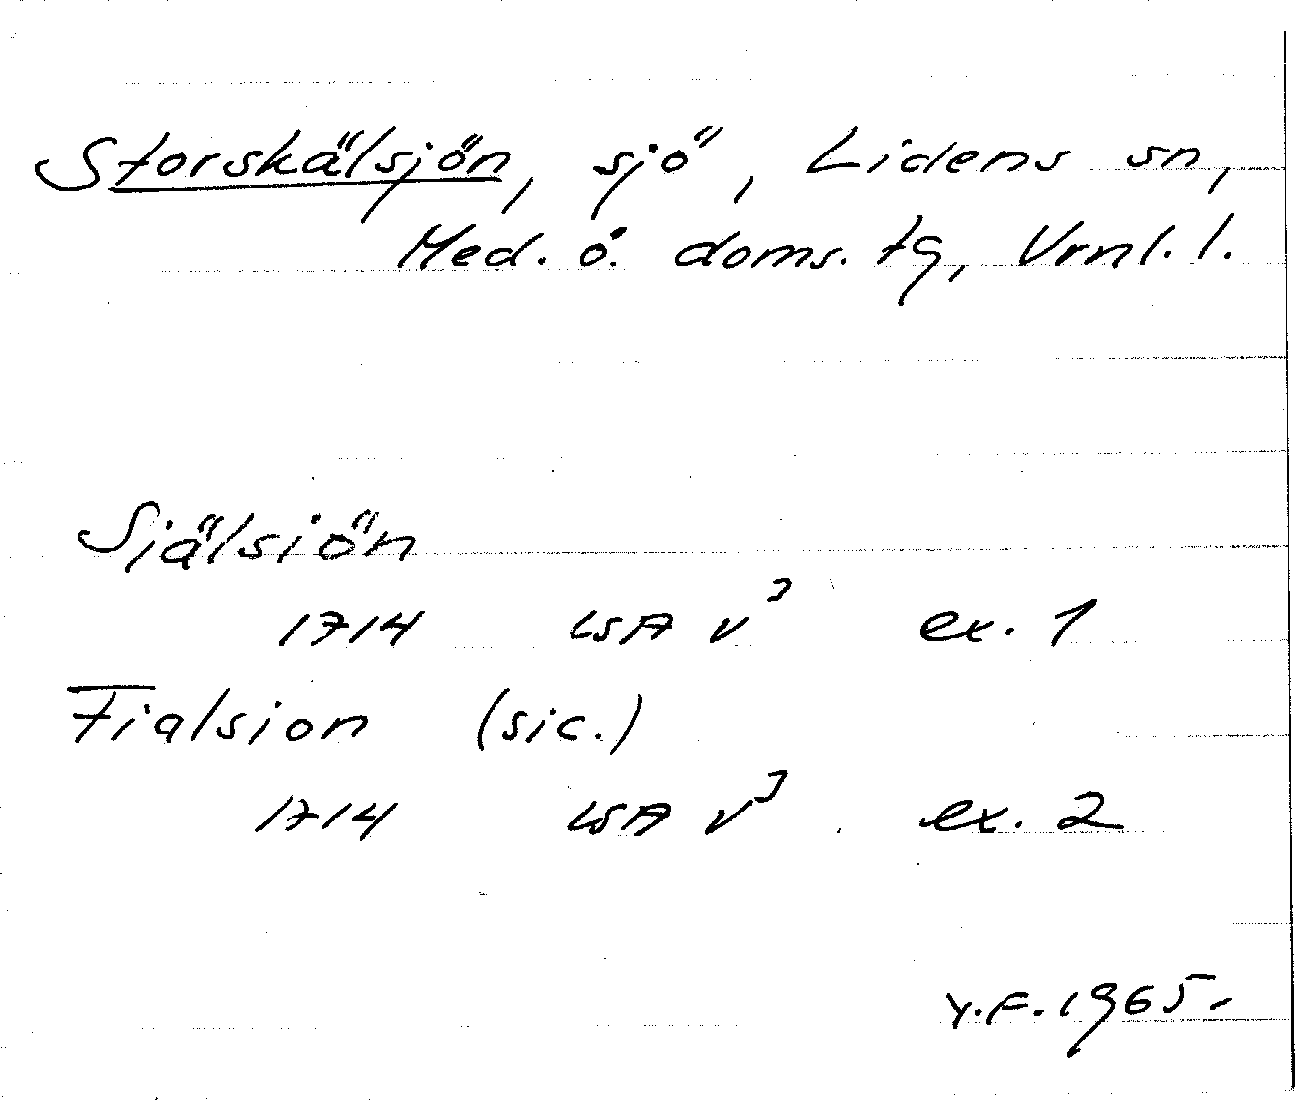 Storskälsjön, sjö, Lidens sn,
Med. ö. doms. tg, Vrnl. l.
Siälsiön
1714 LSA V³ ex. 1
Fialsion (sic.)
1714 LSA V³ ex. 2
Y.F. 1965.